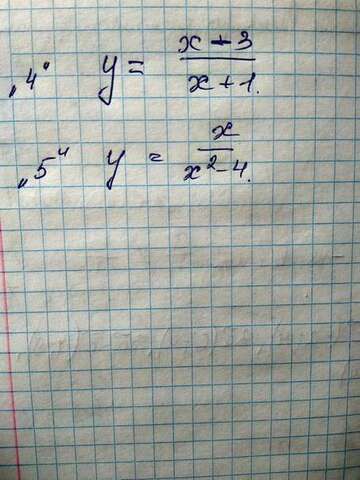 „4“ y = \frac{x + 3}{x + 1}.
„5“ y = \frac{x}{x² - 4}.